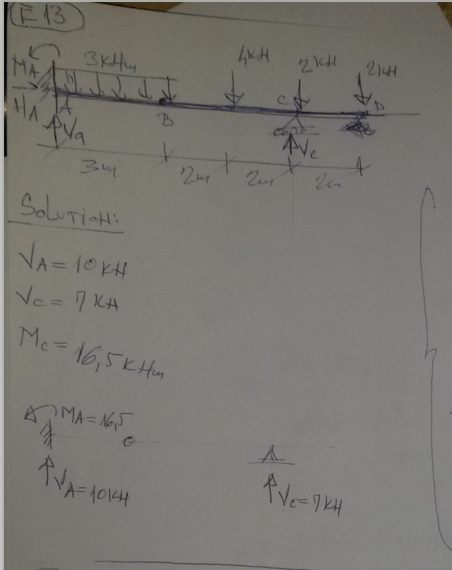 E 13
3KHm 4KH 2KH 2KH
MA
HA A B C D
Va Vc
3m 2m 2m 2m
Solution:
VA = 10 KH
Vc = 7 KH
Mc = 16,5 KHm
MA = 16,5
VA = 10KH Vc = 7KH